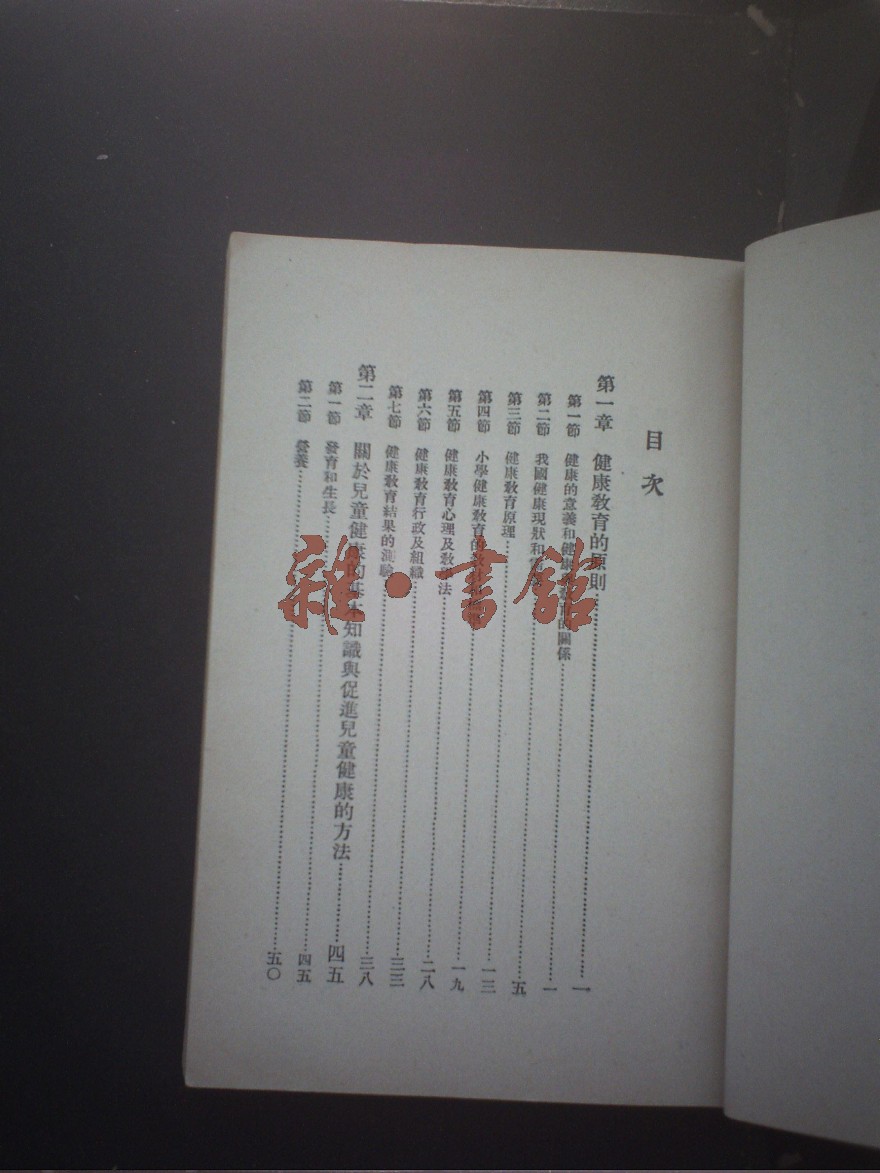 目次
第一章 健康敎育的原則 一
第一節 健康的意義和健康敎育的關係 一
第二節 我國健康現狀和 五
第三節 健康敎育原理 一三
第四節 小學健康敎育的 一九
第五節 健康敎育心理及敎 法 二八
第六節 健康敎育行政及組織 三三
第七節 健康敎育結果的測驗 三八
第二章 關於兒童健康的基本知識與促進兒童健康的方法 四五
第一節 發育和生長 四五
第二節 營養 五〇
雜·書館